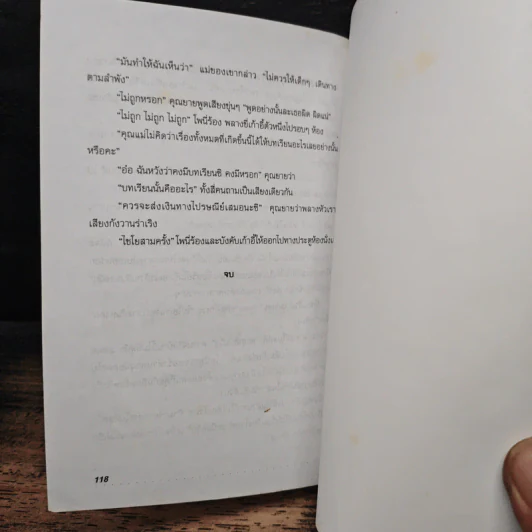 "มันทำให้ฉันเห็นว่า" แม่ของเขากล่าว "ไม่ควรให้เด็กๆ เดินทาง
ตามลำพัง"
"ไม่ถูกหรอก" คุณยายพูดเสียงขุ่นๆ "พูดอย่างนั้นละเธอผิด ผิดแน่"
"ไม่ถูก ไม่ถูก ไม่ถูก" โพนี่ร้อง พลางขี่เก้าอี้ตัวหนึ่งไปรอบๆ ห้อง
"คุณแม่ไม่คิดว่าเรื่องทั้งหมดที่เกิดขึ้นนี้ได้ให้บทเรียนอะไรเลยอย่างนั้น
หรือคะ"
"อ๋อ ฉันหวังว่าคงมีบทเรียนซิ คงมีหรอก" คุณยายว่า
"บทเรียนนั้นคืออะไร" ทั้งสี่คนถามเป็นเสียงเดียวกัน
"ควรจะส่งเงินทางไปรษณีย์เสมอนะซิ" คุณยายว่าพลางหัวเราะ
เสียงกังวานร่าเริง
"ไชโยสามครั้ง" โพนี่ร้องและบังคับเก้าอี้ให้ออกไปทางประตูห้องนั่งเ
จบ
118